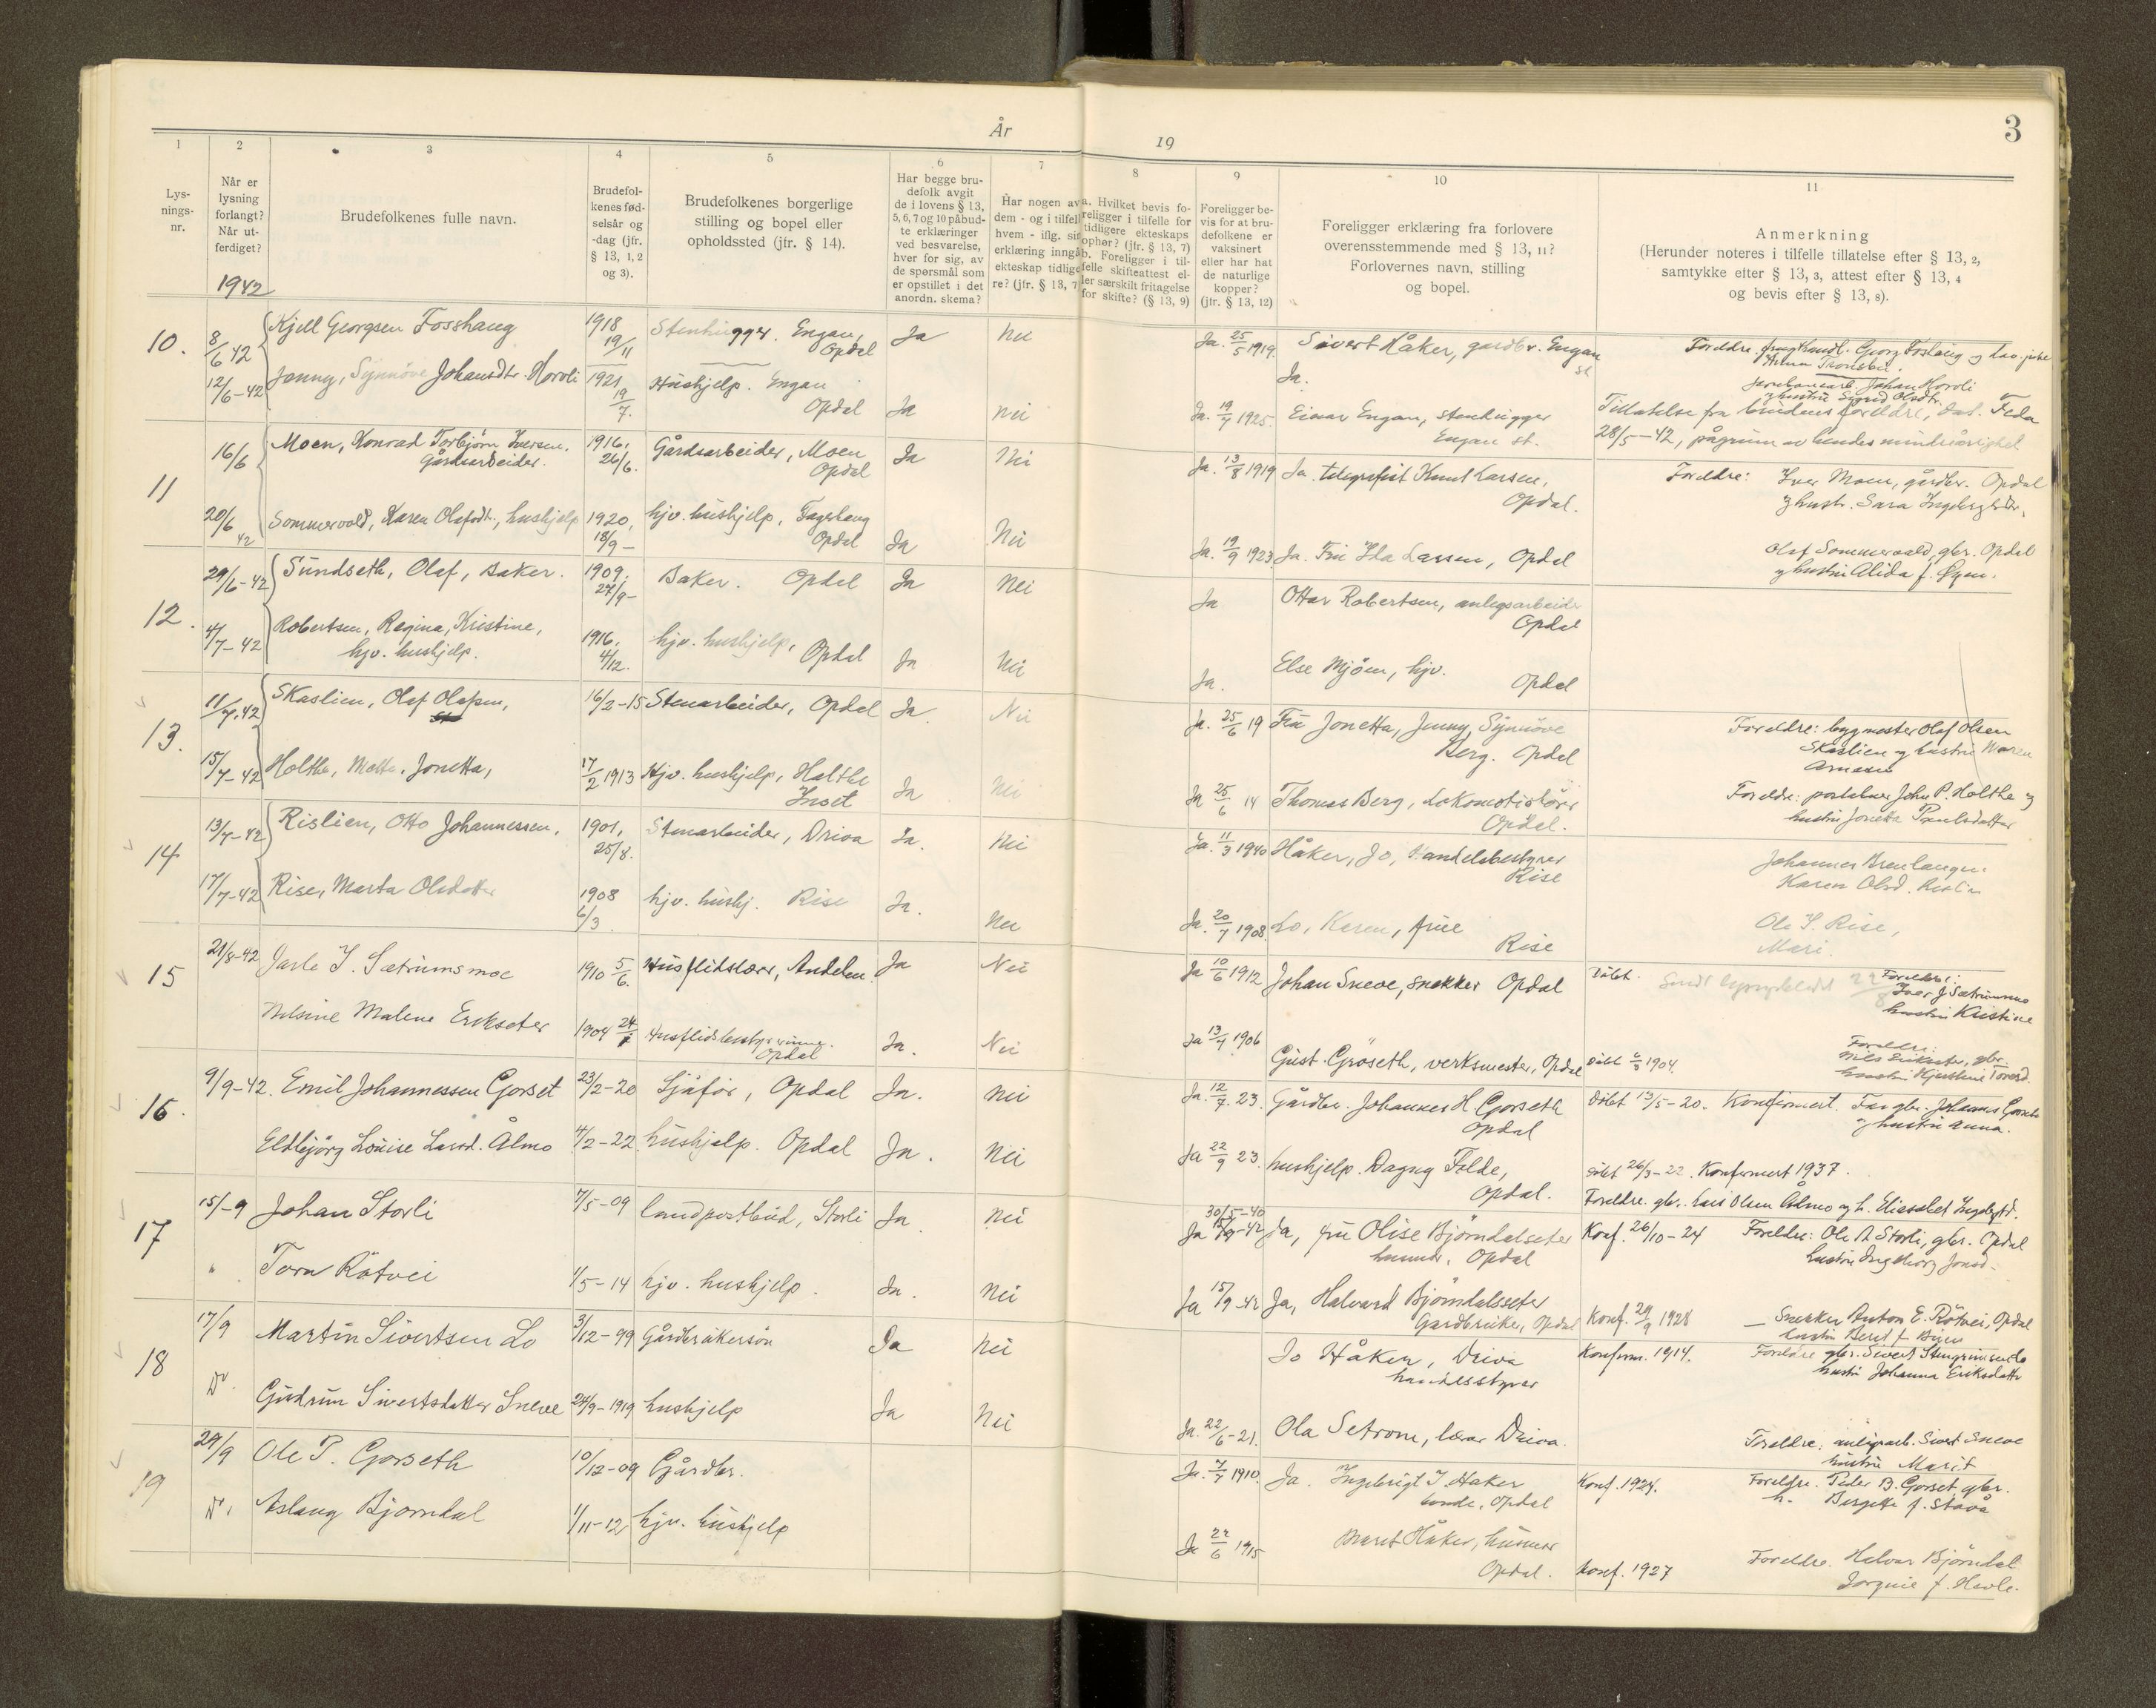 År
19
3
1
2
3
4
5
6
7
8
9
10
11
Lys-
nings-
nr.
Når er
lysning
forlangt?
Når ut-
ferdiget?
Brudefolkenes fulle navn.
Brudefol-
kenes fød-
selsår og
-dag (jfr.
§ 13, 1, 2
og 3).
Brudefolkenes borgerlige
stilling og bopel eller
opholdssted (jfr. § 14).
Har begge bru-
defolk avgit
de i lovens § 13,
5, 6, 7 og 10 påbud-
te erklæringer
ved besvarelse,
hver for sig, av
de spørsmål som
er opstillet i det
anordn. skema?
Har nogen av
dem - og i tilfell
hvem - iflg. sin
erklæring inngå
ekteskap tidlige
re? (jfr. § 13, 7
a. Hvilket bevis fo-
religger i tilfelle for
tidligere ekteskaps
ophør? (jfr. § 13, 7)
b. Foreligger i til-
felle skifteattest el-
ler særskilt fritagelse
for skifte? (§ 13, 9)
Foreligger be-
vis for at bru-
defolkene er
vaksinert
eller har hat
de naturlige
kopper?
(jfr. § 13, 12)
Foreligger erklæring fra forlovere
overensstemmende med § 13, 11?
Forlovernes navn, stilling
og bopel.
Anmerkning
(Herunder noteres i tilfelle tillatelse efter § 13, 2,
samtykke efter § 13, 3, attest efter § 13, 4
og bevis efter § 13, 8).
1942
10.
8/6 42
Kjell Georgsen Fosshaug
1918
19/11
Stenhugger. Engan,
Opdal
Ja
Nei
Ja. 25/5 1919.
Sivert Håker, gardbr. Engan
st
Foreldre Georg Foshaug og
12/6-42
Jenny, Synnöve Johansdtr. Horoli
1921
19/7.
Hushjelp. Engan
Opdal
Ja
Nei
Ja. 19/7 1925.
Ja.
Einar Engan, stenhugger
Engan st.
Johan Horoli
hustru Sigrid Olsdtr.
Tillatelse fra brudens foreldre, dat.
28/5-42, pågrunn av hendes mindreårighet
11
16/6
Moen, Konrad Torbjørn Iversen.
Gårdsarbeider.
1916.
26/6.
Gårdsarbeider, Moen
Opdal
Ja
Nei
Ja. 13/8 1919
Ja. telegrafist Knut Larsen,
Opdal.
Foreldre: Iver Moen, gårdbr. Opdal
og hustr. Sara
20/6
42
Sommervold, Karen Olafsdt., hushjelp
1920,
18/9-
hjv. hushjelp, Fagerhaug
Opdal
Ja
Nei
Ja. 19/9 1923
Ja. Fru Ida Larsen, Opdal
Olaf Sommervold, gbr. Opdal
og hustru Alida f. Øyen.
12.
29/6-42
Sundseth, Olaf, Baker.
1909.
27/9-
Baker. Opdal
Ja
Nei
Ja
Ottar Robertsen, anlegsarbeider
Opdal
4/7-42
Robertsen, Regina, Kristine,
hjv. hushjelp.
1916.
4/12.
hjv. hushjelp, Opdal
Ja
Nei
Ja.
Else Mjöen, hjv.
Opdal
13.
11/7.42
Skaslien, Olaf Olafsen,
16/2-15
Stenarbeider, Opdal
Ja
Nei
Ja. 25/6 19
Fru Jonetta, Jenny, Synnöve
Berg. Opdal
Foreldre: bygmester Olaf Olsen
Skaslien og hustru Maren
15/7-42
Holthe, Jonetta,
17/2 1913
Hjv. hushjelp, Holthe
Inset
Ja
Nei
Ja 25/6 14
Thomas Berg, Lokomotivförer
Opdal.
Foreldr: John P. Holthe og
hustru Jonetta Paulsdatter
14
13/7-42
Rislien, Otto Johannessen,
1901,
25/8.
Stenarbeider, Driva
Ja.
Nei
Ja. 11/3 1940
Håker, Jo, Handelsbestyrer
Rise
Johannes
Karen Olsd.
17/7-42
Rise, Marta Olsdatter
1908
6/3
hjv. hushj. Rise
Ja.
Nei
Ja. 20/7 1908.
Lo, Karen, frue
Rise
Ole I. Rise,
Mari.
15
21/8-42
Jarle I. Sætrumsmoe
1910 5/6.
Husflidslærer, Åndalen
Ja
Nei
Ja 10/6 1912
Johan Sneve, snekker Opdal
Döbt
Foreldre:
Iver J Sætrumsmo
hustru Kristine
Nilsine Malene Erikseter
1904
Husflidsbestyrerinne.
Opdal
Ja.
Nei
Ja 13/7 1906
Gust. Gröseth, verksmester, Opdal
Döbt 1904.
Foreldre:
Nils Erikseter, gbr.
16.
9/9-42.
Emil Johannessen Gorset
23/2-20
Sjåför, Opdal
Ja.
Nei
Ja. 12/7. 23.
Gårdbr. Johannes H Gorseth
Opdal
Döbt 13/5-20. Konfirmert. Far gbr. Johannes Gorseth
og hustru Anna.
Eldbjörg Louise Larsd. Ålmo
4/2-22
hushjelp. Opdal
Ja.
Nei
Ja 22/9 23.
hushjelp. Dagny Felde,
Opdal.
Döbt 26/3-22. Konfirmert 1937.
Foreldre. gbr. Lars Olsen Ålmo og h. Elisabet
17
15/-9
Johan Storli
7/5-09
landpostbud, Storli
Ja
Nei
30/5-40
Ja 15/9-42
Ja, fru Olise Björndalseter
husmor. Opdal
Konf. 26/10-24
Foreldre: Ole A Storli, gbr. Opdal
hustru Ingeborg Jonsd.
"
Tora Rötvei
1/5-14
hjv. hushjelp.
Ja.
Nei
Ja 15/9-42
Ja, Halvard Björndalsseter
Gardbruker, Opdal
Konf. 29/9 1928
Snekker Anton E. Rötvei, Opdal
hustru Berit f.
18
17/9
Martin Sivertsen Lo
3/12-99
Gårdbrukersön
Ja
Nei
Jo Håker, Driva
Konfirm. 1914.
Foreldre gbr. Sivert
hustru Johanna Eriksdatter
Do.
Gudrun Sivertsdatter Sneve
24/9-1919
hushjelp
Ja
Nei
Ja. 22/6-21.
Ola Setrom, lærer Driva.
Foreldre: anlegsarb. Sivert Sneve
hustru Marit
19
29/9
Ole P. Gorseth
10/12-09
Gårdbr.
Ja. 7/7 1910.
Ja. Ingebrigt I Haker
bonde, Opdal
Konf. 1924.
Foreldre. Peder B. Gorset, gbr.
h. Bergitte f. Stavå
Do.
Aslaug Bjorndal
1/11-12
hjv. hushjelp
Ja 22/6 1915
Marit Håker, husmor
Opdal.
Konf. 1927
Foreldre. Halvor Björndal